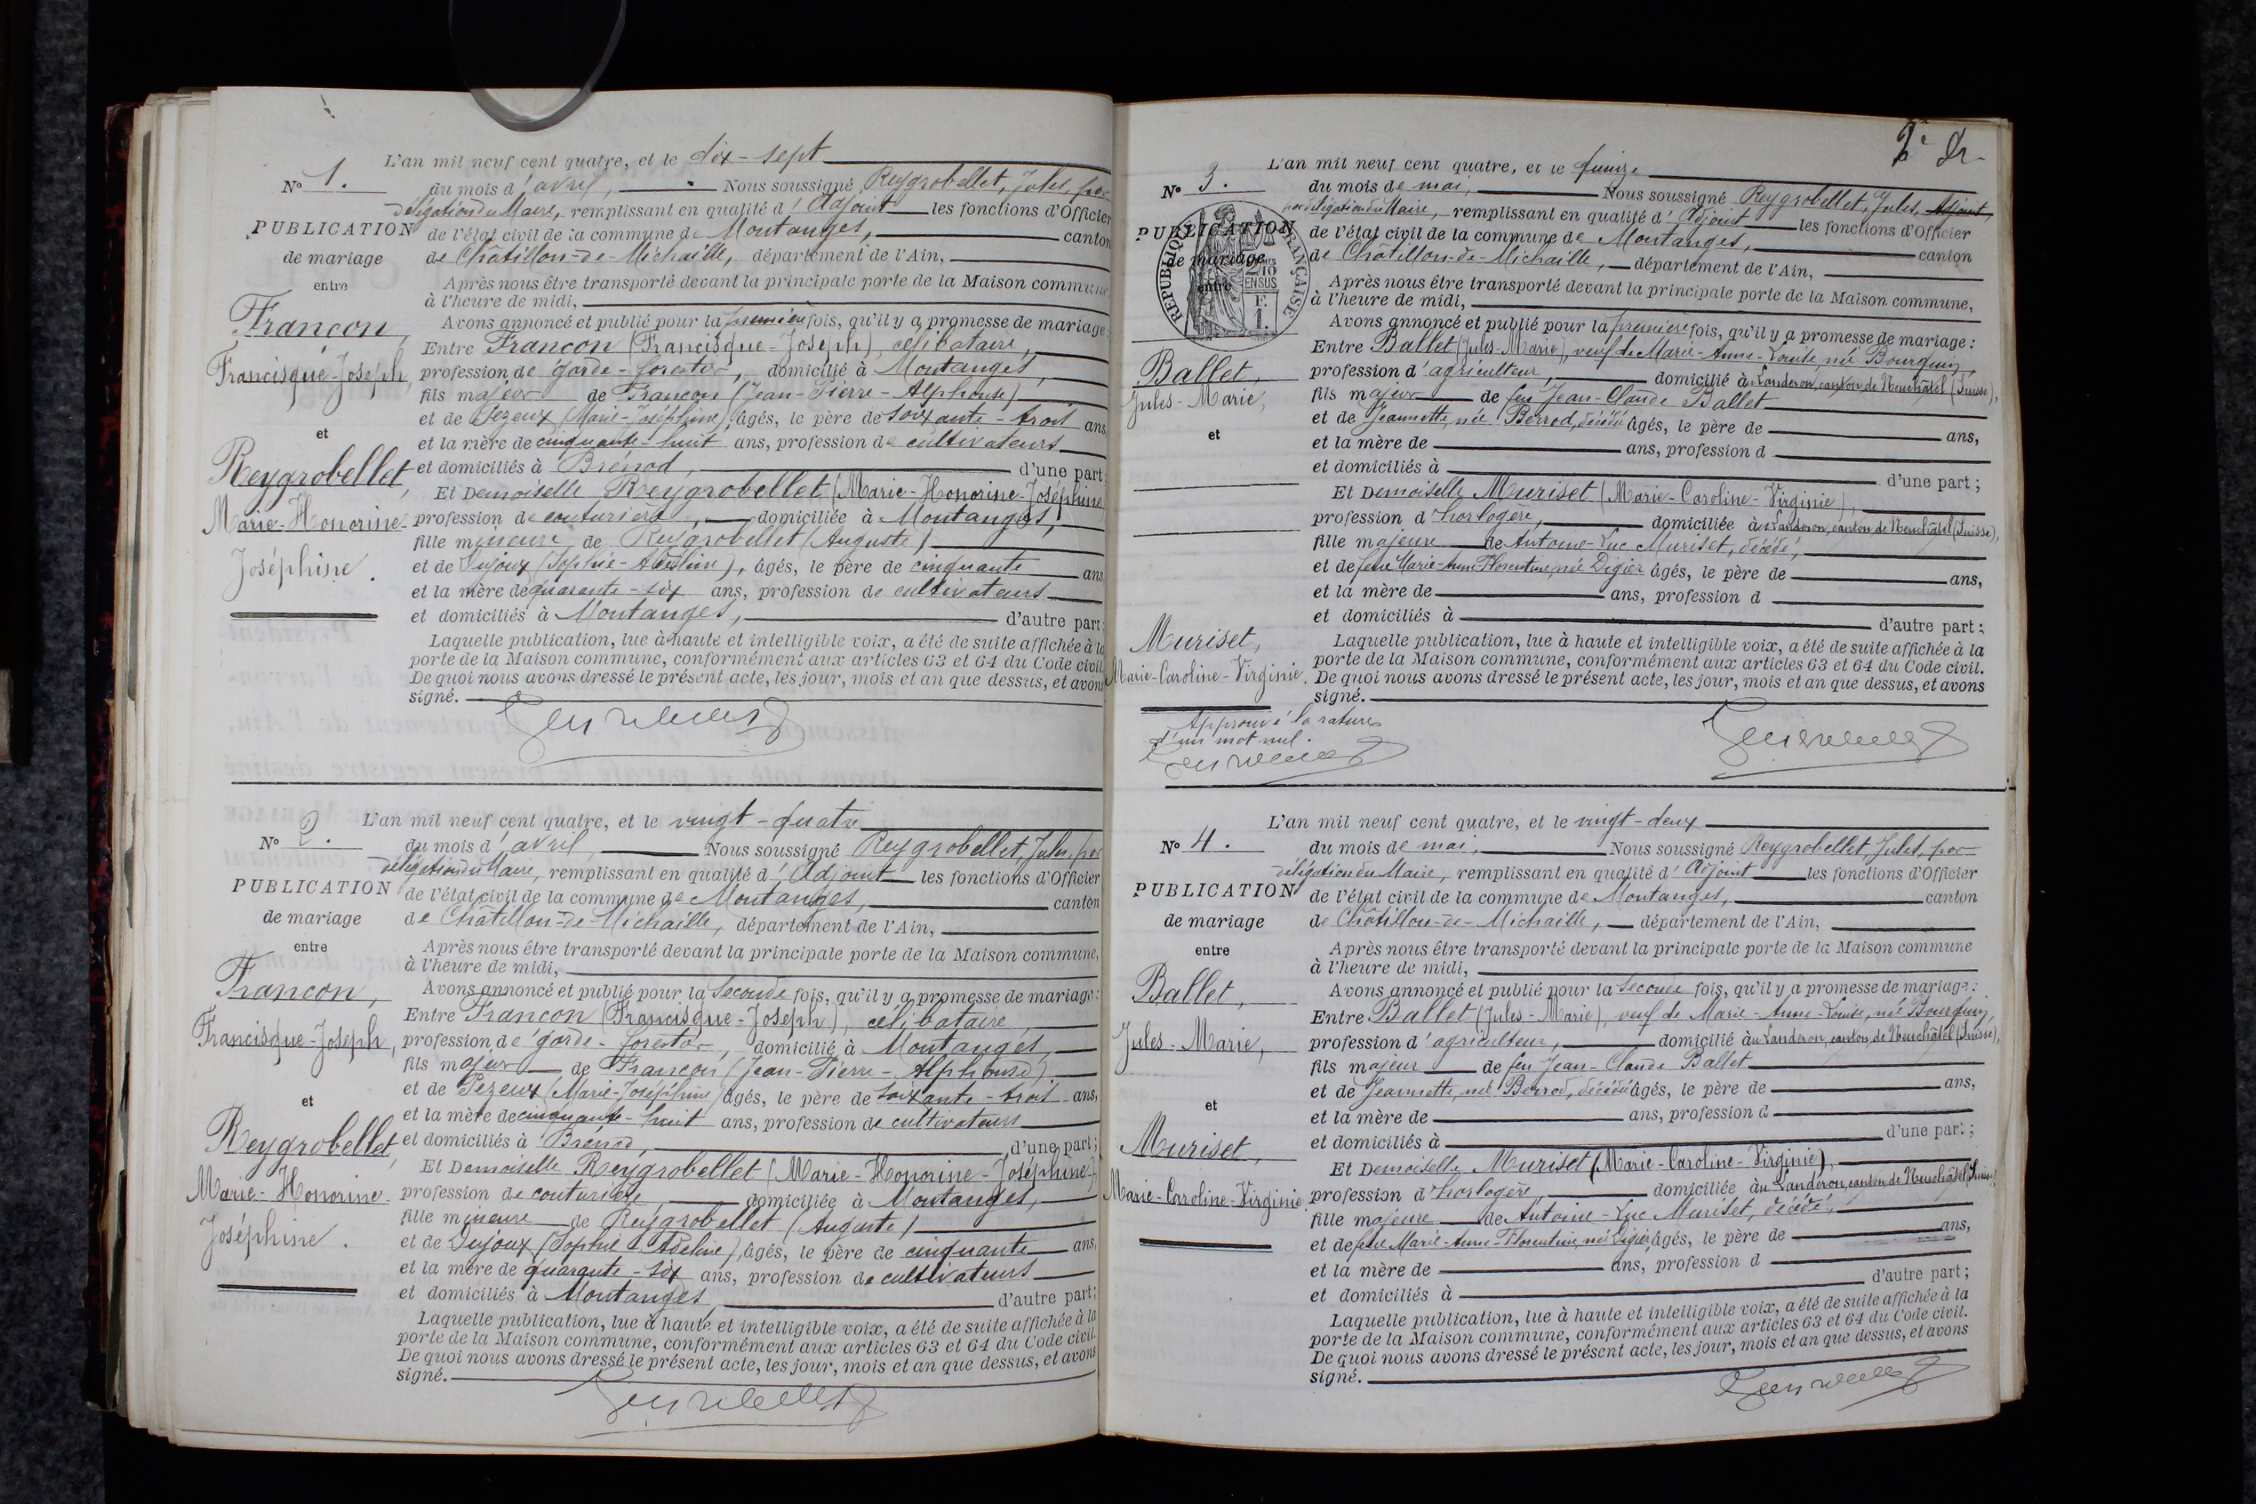 L'an mil neuf cent quatre, et le dix-sept
N° 1. du mois d'avril, Nous soussigné Reygrobellet, Jules, par
délégation du Maire, remplissant en qualité d'Adjoint les fonctions d'Officier
PUBLICATION de l'état civil de la commune de Montanges, canton
de mariage de Châtillon-de-Michaille, département de l'Ain,
entre Après nous être transporté devant la principale porte de la Maison commune
à l'heure de midi,
Françon, Avons annoncé et publié pour la première fois, qu'il y a promesse de mariage:
Entre Françon (Francisque-Joseph), célibataire,
Francisque-Joseph, profession de garde-forestier, domicilié à Montanges,
fils majeur de Françon (Jean-Pierre-Alphonse)
et de Pezeux (Marie-Joséphine), âgés, le père de soixante-trois ans,
et et la mère de cinquante-huit ans, profession de cultivateurs
Reygrobellet, et domiciliés à Brénod, d'une part;
Et Demoiselle Reygrobellet (Marie-Honorine-Joséphine)
Marie-Honorine- profession de couturière, domiciliée à Montanges,
fille mineure de Reygrobellet (Auguste)
Joséphine. et de Dujoux (Sophie-Adeline), âgés, le père de cinquante ans
et la mère de quarante-six ans, profession de cultivateurs
et domiciliés à Montanges, d'autre part:
Laquelle publication, lue à haute et intelligible voix, a été de suite affichée à la
porte de la Maison commune, conformément aux articles 63 et 64 du Code civil.
De quoi nous avons dressé le présent acte, les jour, mois et an que dessus, et avons
signé.
L'an mil neuf cent quatre, et le vingt-quatre
N° 2. du mois d'avril, Nous soussigné Reygrobellet, Jules, par
délégation du Maire, remplissant en qualité d'Adjoint les fonctions d'Officier
PUBLICATION de l'état civil de la commune de Montanges, canton
de mariage de Châtillon-de-Michaille, département de l'Ain,
entre Après nous être transporté devant la principale porte de la Maison commune,
à l'heure de midi,
Françon, Avons annoncé et publié pour la seconde fois, qu'il y a promesse de mariage:
Entre Françon (Francisque-Joseph), célibataire,
Francisque-Joseph, profession de garde-forestier, domicilié à Montanges,
fils majeur de Françon (Jean-Pierre-Alphonse)
et de Pezeux (Marie-Joséphine) âgés, le père de soixante-trois ans,
et et la mère de cinquante-huit ans, profession de cultivateurs
Reygrobellet, et domiciliés à Brénod, d'une part;
Et Demoiselle Reygrobellet (Marie-Honorine-Joséphine),
Marie-Honorine- profession de couturière, domiciliée à Montanges,
fille mineure de Reygrobellet (Auguste)
Joséphine. et de Dujoux (Sophie-Adeline), âgés, le père de cinquante ans,
et la mère de quarante-six ans, profession de cultivateurs
et domiciliés à Montanges, d'autre part;
Laquelle publication, lue à haute et intelligible voix, a été de suite affichée à la
porte de la Maison commune, conformément aux articles 63 et 64 du Code civil.
De quoi nous avons dressé le présent acte, les jour, mois et an que dessus, et avons
signé.
L'an mil neuf cent quatre, et le quinze
N° 3. du mois de mai, Nous soussigné Reygrobellet, Jules, Adjoint,
par délégation du Maire, remplissant en qualité d'Adjoint les fonctions d'Officier
PUBLICATION de l'état civil de la commune de Montanges, canton
de mariage de Châtillon-de-Michaille, département de l'Ain,
entre Après nous être transporté devant la principale porte de la Maison commune,
RÉPUBLIQUE FRANÇAISE
à l'heure de midi,
Avons annoncé et publié pour la première fois, qu'il y a promesse de mariage:
Entre Ballet (Jules-Marie), veuf de Marie-Anne-Louise, née Bourquin,
Ballet, profession d'agriculteur, domicilié au Landeron, canton de Neuchâtel (Suisse),
Jules-Marie, fils majeur de feu Jean-Claude Ballet
et de Jeannette, née Berrod, décédée âgés, le père de ans,
et et la mère de ans, profession d
et domiciliés à d'une part;
Et Demoiselle Muriset (Marie-Caroline-Virginie),
profession d'horlogère, domiciliée au Landeron, canton de Neuchâtel (Suisse),
fille majeure de Antoine-Luc Muriset, décédé,
et de feue Marie-Anne-Florentine, née Digier âgés, le père de ans,
et la mère de ans, profession d
et domiciliés à d'autre part;
Muriset, Laquelle publication, lue à haute et intelligible voix, a été de suite affichée à la
porte de la Maison commune, conformément aux articles 63 et 64 du Code civil.
Marie-Caroline-Virginie. De quoi nous avons dressé le présent acte, les jour, mois et an que dessus, et avons
signé.
Approuvé la rature
d'un mot nul.
L'an mil neuf cent quatre, et le vingt-deux
N° 4. du mois de mai, Nous soussigné Reygrobellet Jules, par
délégation du Maire, remplissant en qualité d'Adjoint les fonctions d'Officier
PUBLICATION de l'état civil de la commune de Montanges, canton
de mariage de Châtillon-de-Michaille, département de l'Ain,
entre Après nous être transporté devant la principale porte de la Maison commune
à l'heure de midi,
Ballet, Avons annoncé et publié pour la seconde fois, qu'il y a promesse de mariage:
Entre Ballet (Jules-Marie), veuf de Marie-Anne-Louise, née Bourquin,
Jules-Marie, profession d'agriculteur, domicilié au Landeron, canton de Neuchâtel (Suisse),
fils majeur de feu Jean-Claude Ballet
et de Jeannette, née Berrod, décédée âgés, le père de ans,
et et la mère de ans, profession d
Muriset, et domiciliés à d'une part;
Et Demoiselle Muriset (Marie-Caroline-Virginie),
Marie-Caroline-Virginie. profession d'horlogère domiciliée au Landeron, canton de Neuchâtel (Suisse)
fille majeure de Antoine-Luc Muriset, décédé,
et de feue Marie-Anne-Florentine, née Digier âgés, le père de ans,
et la mère de ans, profession d
et domiciliés à d'autre part;
Laquelle publication, lue à haute et intelligible voix, a été de suite affichée à la
porte de la Maison commune, conformément aux articles 63 et 64 du Code civil.
De quoi nous avons dressé le présent acte, les jour, mois et an que dessus, et avons
signé.